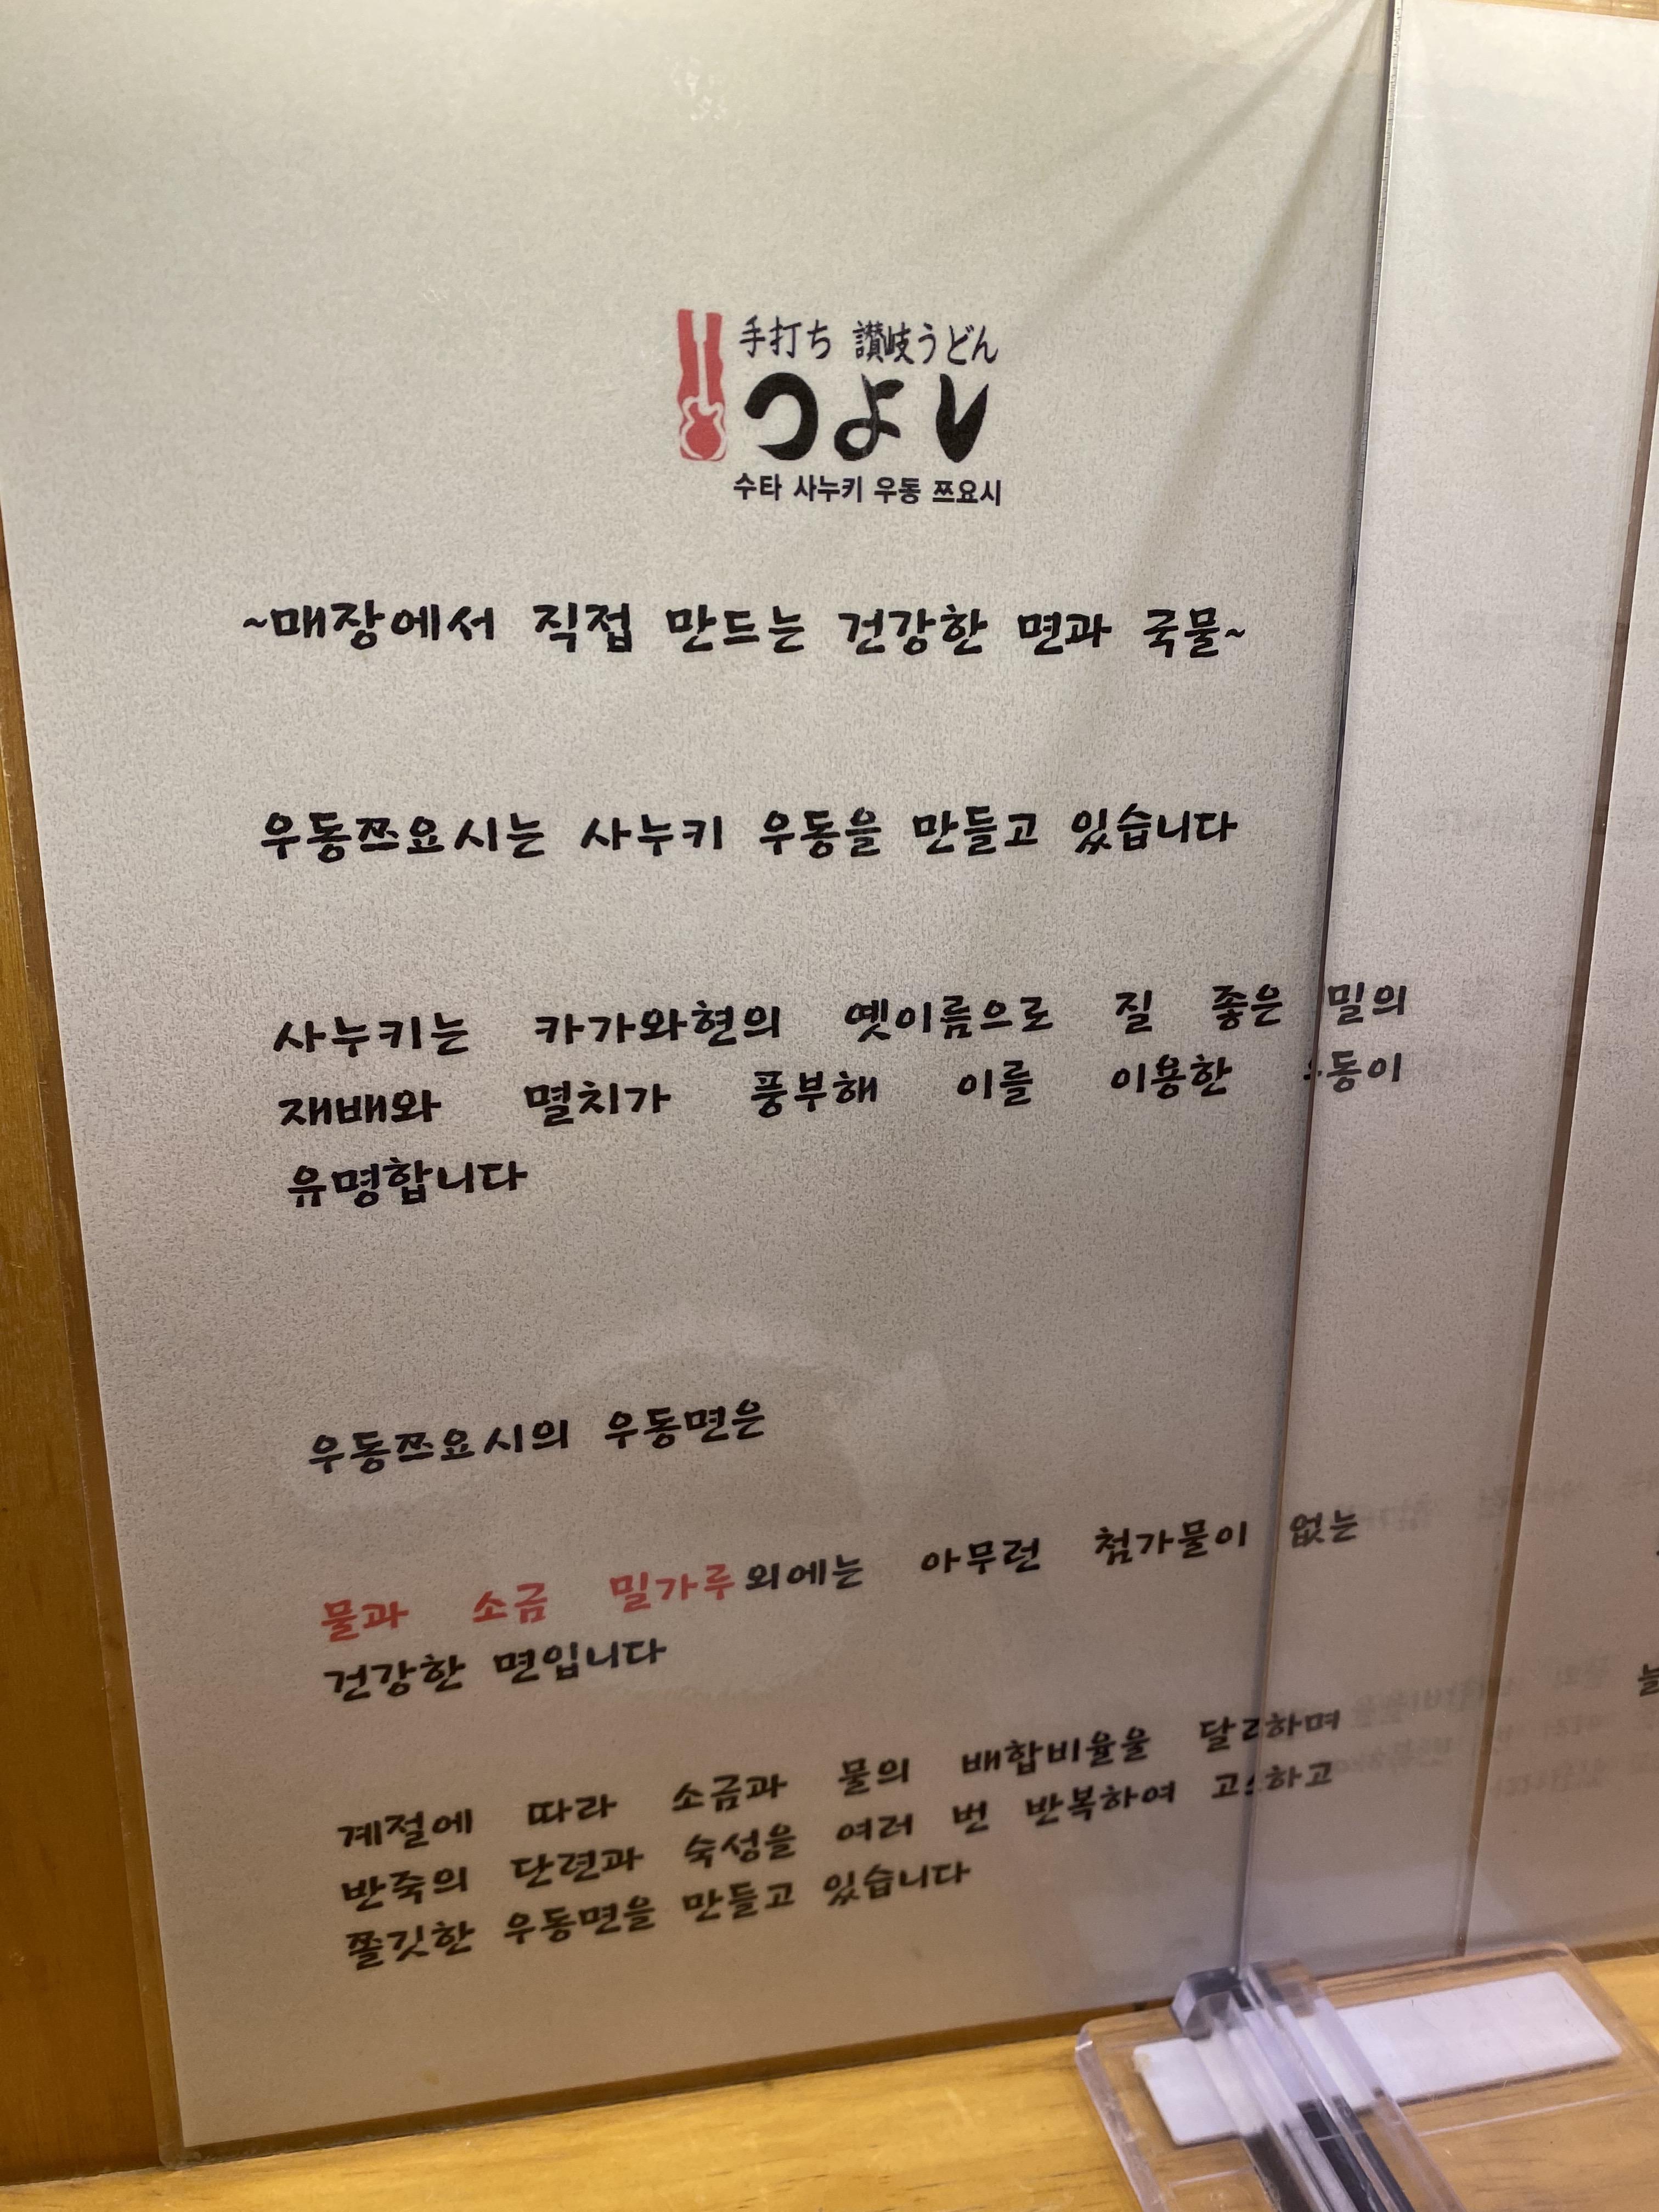 手打ち 讃岐うどん
つよし
수타 사누키 우동 쯔요시
~매장에서 직접 만드는 건강한 면과 국물~
우동쯔요시는 사누키 우동을 만들고 있습니다
사누키는 카가와현의 옛이름으로 질 좋은 밀의
재배와 멸치가 풍부해 이를 이용한 우동이
유명합니다
우동쯔요시의 우동면은
물과 소금 밀가루외에는 아무런 첨가물이 없는
건강한 면입니다
계절에 따라 소금과 물의 배합비율을 달리하며
반죽의 단련과 숙성을 여러 번 반복하여 고스하고
쫄깃한 우동면을 만들고 있습니다